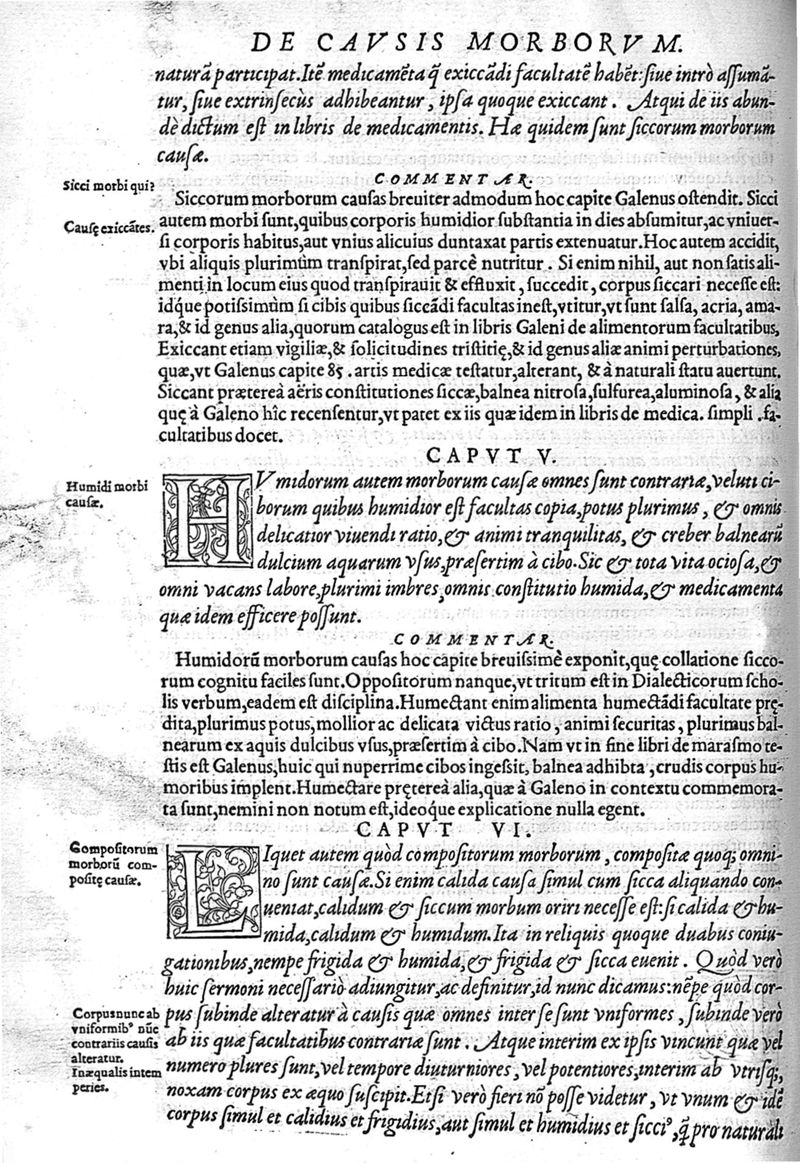 DE CAVSIS MORBORVM.
naturā participat. Itē medicamēta q̄ exiccādi facultatē habēt: siue intrò assumā-
tur, siue extrinsecùs adhibeantur, ipsa quoque exiccant. Atqui de iis abun-
dè dictum est in libris de medicamentis. Hæ quidem sunt siccorum morborum
causæ.
COMMENTAR.
Sicci morbi qui?
Siccorum morborum causas breuiter admodum hoc capite Galenus ostendit. Sicci
Causę exiccātes.
autem morbi sunt, quibus corporis humidior substantia in dies absumitur, ac vniuer-
si corporis habitus, aut vnius alicuius duntaxat partis extenuatur. Hoc autem accidit,
vbi aliquis plurimùm transpirat, sed parcè nutritur. Si enim nihil, aut non satis ali-
menti in locum eius quod transpirauit & effluxit, succedit, corpus siccari necesse est:
idq́ue potissimùm si cibis quibus siccādi facultas inest, vtitur, vt sunt salsa, acria, ama-
ra, & id genus alia, quorum catalogus est in libris Galeni de alimentorum facultatibus,
Exiccant etiam vigiliæ, & solicitudines tristitię, & id genus aliæ animi perturbationes,
quæ, vt Galenus capite 85. artis medicæ testatur, alterant, & à naturali statu auertunt.
Siccant prætereà aëris constitutiones siccæ, balnea nitrosa, sulfurea, aluminosa, & alia
quę à Galeno hîc recensentur, vt patet ex iis quæ idem in libris de medica. simpli. fa-
cultatibus docet.
CAPVT V.
Humidi morbi
causæ.
HVmidorum autem morborum causæ omnes sunt contrariæ, veluti ci-
borum quibus humidior est facultas copia, potus plurimus, & omnis
delicatior viuendi ratio, & animi tranquilitas, & creber balnearū
dulcium aquarum vsus, præsertim à cibo. Sic & tota vita ociosa, &
omni vacans labore, plurimi imbres, omnis constitutio humida, & medicamenta
quæ idem efficere possunt.
COMMENTAR.
Humidorū morborum causas hoc capite breuissimè exponit, quę collatione sicco-
rum cognitu faciles sunt. Oppositorum nanque, vt tritum est in Dialecticorum scho-
lis verbum, eadem est disciplina. Humectant enim alimenta humectādi facultate prę-
dita, plurimus potus, mollior ac delicata victus ratio, animi securitas, plurimus bal-
nearum ex aquis dulcibus vsus, præsertim à cibo. Nam vt in fine libri de marasmo te-
stis est Galenus, huic qui nuperrime cibos ingessit, balnea adhibta, crudis corpus hu-
moribus implent. Humectare prętereà alia, quæ à Galeno in contextu commemora-
ta sunt, nemini non notum est, ideoque explicatione nulla egent.
CAPVT VI.
Compositorum
morborū com-
positę causæ.
LIquet autem quòd compositorum morborum, compositæ quoq; omni-
no sunt causæ. Si enim calida causa simul cum sicca aliquando con-
ueniat, calidum & siccum morbum oriri necesse est: si calida & hu-
mida, calidum & humidum. Ita in reliquis quoque duabus coniu-
gationibus, nempe frigida & humida, & frigida & sicca euenit. Quòd verò
huic sermoni necessariò adiungitur, ac definitur, id nunc dicamus: nēpe quòd cor-
Corpus nunc ab
vniformib⁹ nūc
contrariis causis
alteratur.
Inæqualis intem
peries.
pus subinde alteratur à causis quæ omnes inter se sunt vniformes, subinde verò
ab iis quæ facultatibus contrariæ sunt. Atque interim ex ipsis vincunt quæ vel
numero plures sunt, vel tempore diuturniores, vel potentiores, interim ab vtrisq;
noxam corpus ex æquo suscipit. Etsi verò fieri nō posse videtur, vt vnum & idē
corpus simul et calidius et frigidius, aut simul et humidius et sicci⁹, q̄ pro naturali